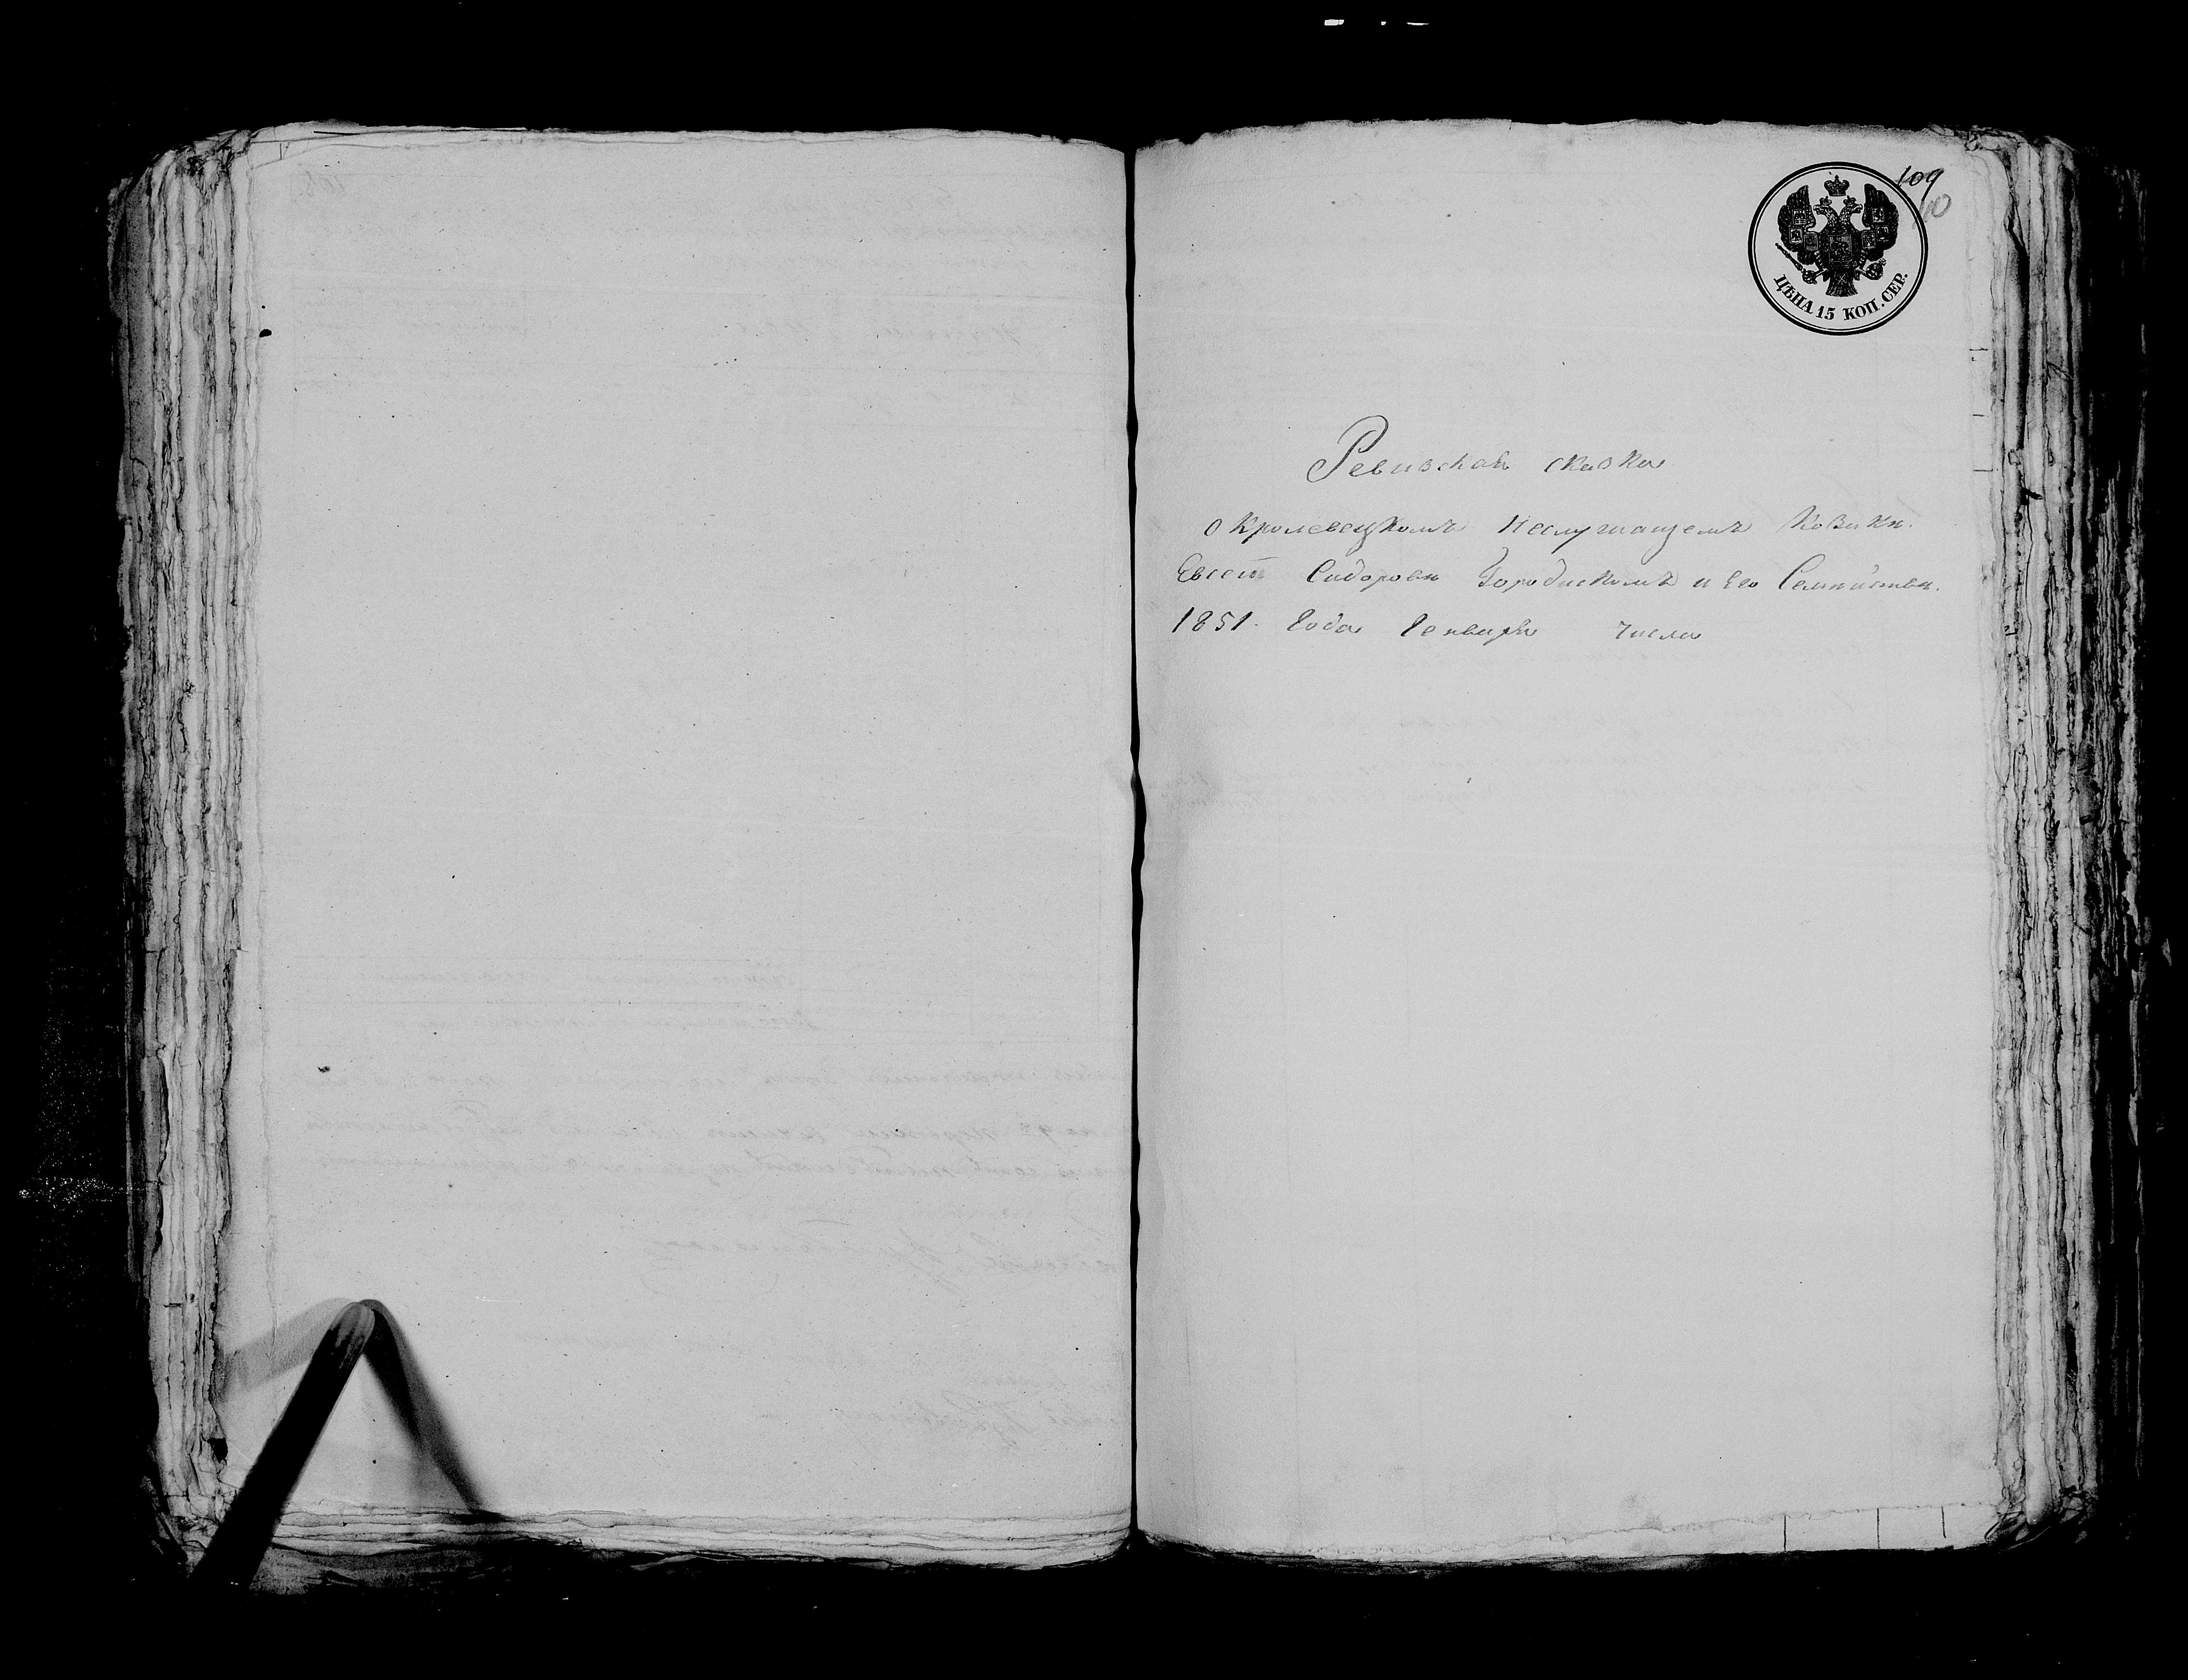 109
ЦѢНА 15 КОП. СЕР.
Ревизская сказка
о Кролевецкомъ Неслужащемъ Козаки.
Евсеи Сидорови Городискомъ и Его Семпйстви.
1851. Года Генваря числа